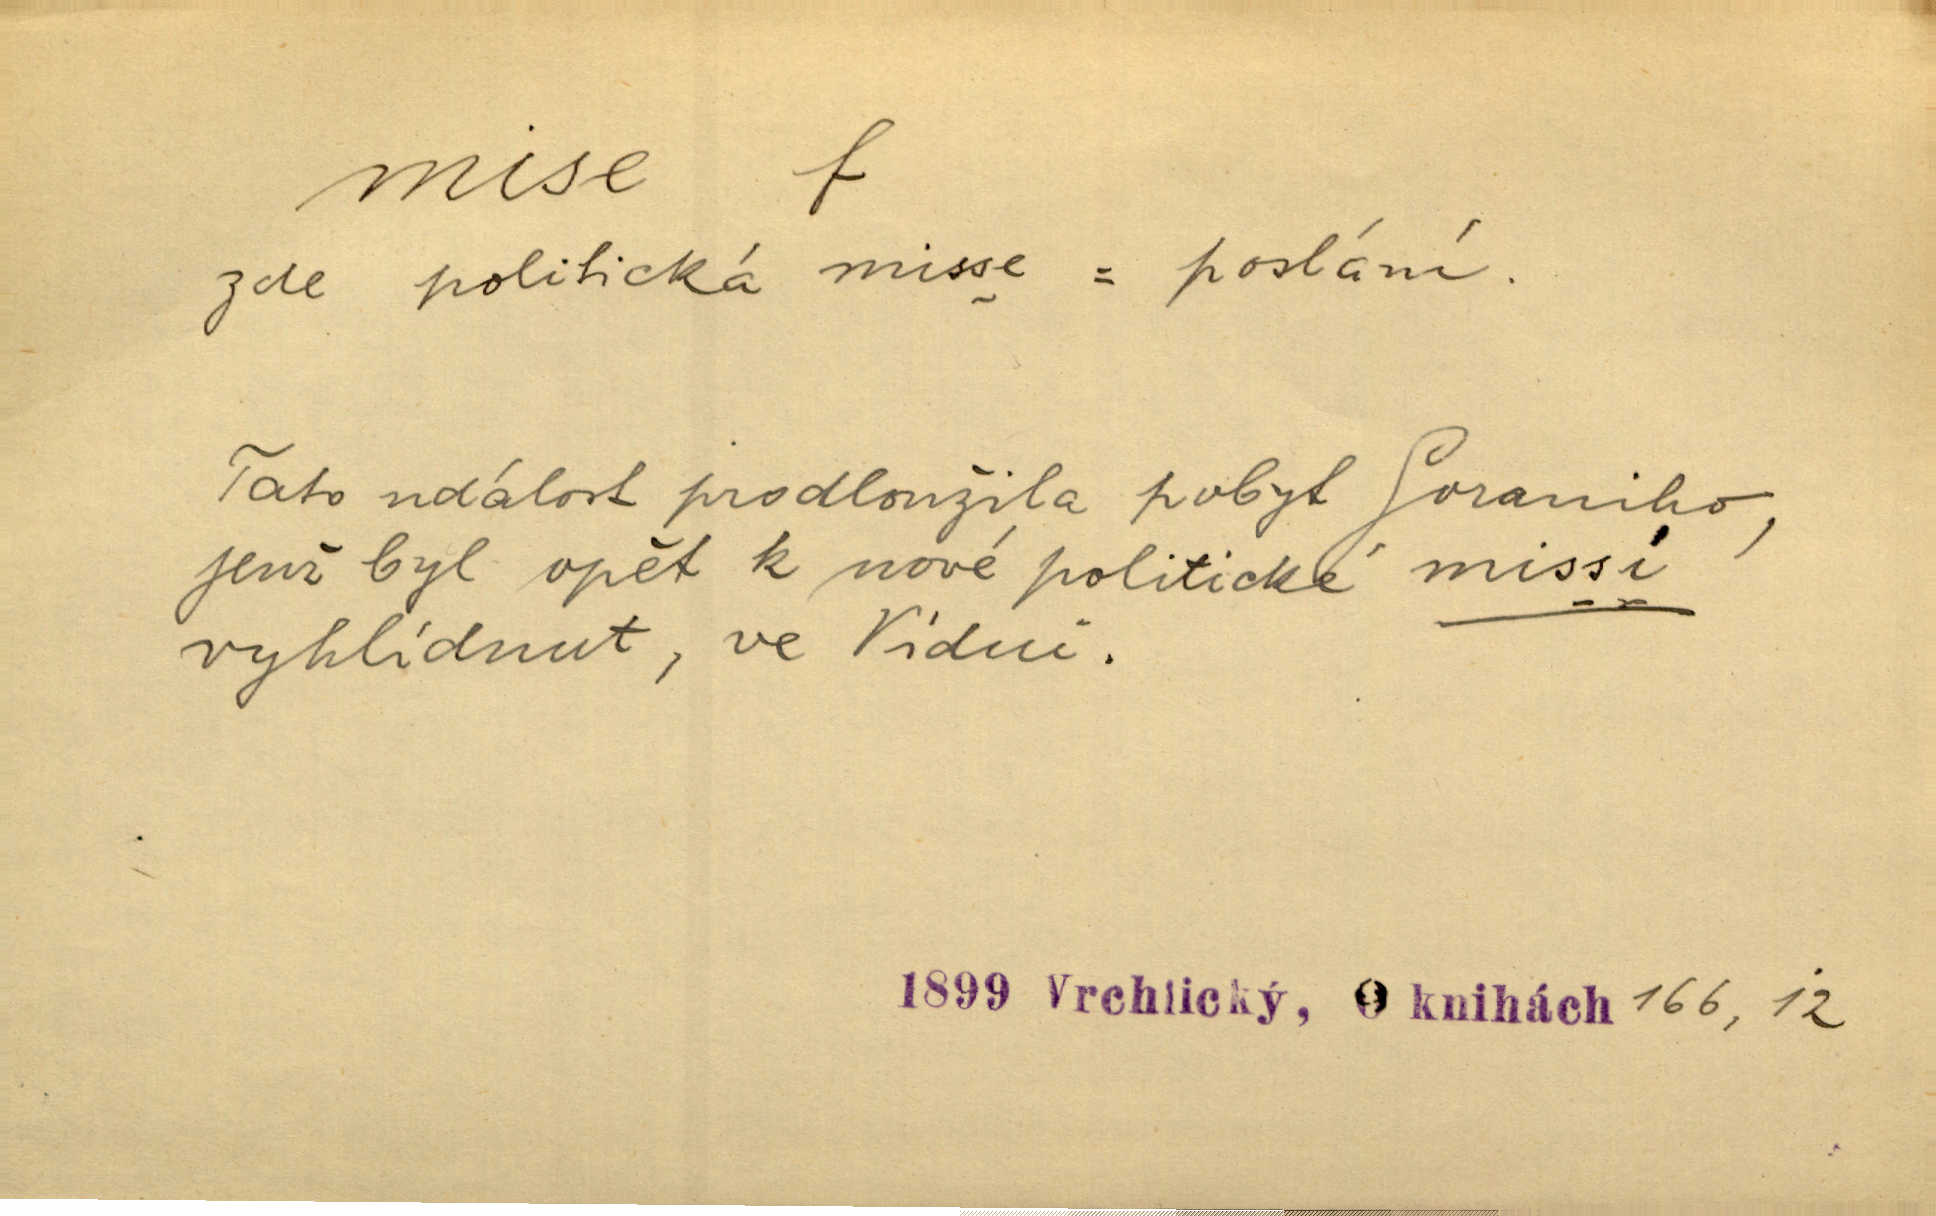 mise f
zde politická misse = poslání.
Tato událost prodloužila pobyt Goraniho,
jenž byl opět k nové politické missi
vyhlídnut, ve Vídni.
1899 Vrchlický, O knihách 166, 12